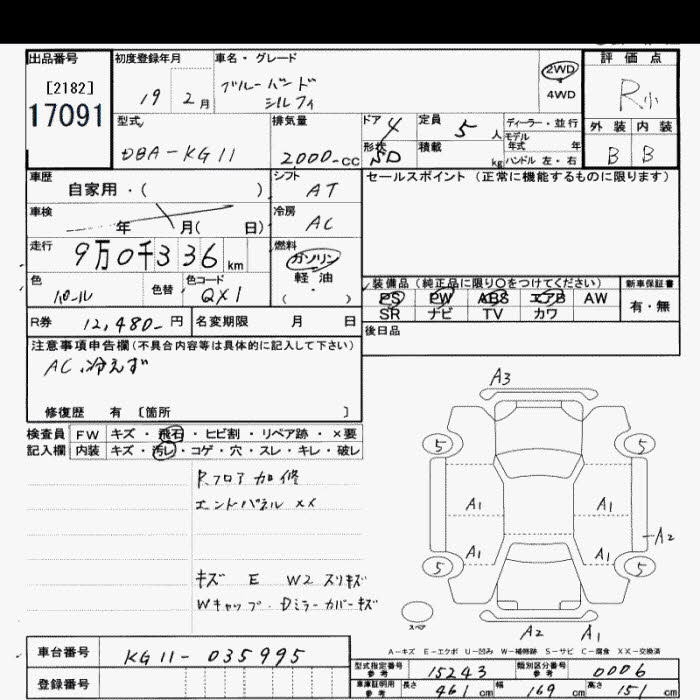 出品番号 初度登録年月 車名・グレード 評価点
[2182] 19 2月 ブルーバード シルフィ 2WD 4WD R小
17091
型式 排気量 ドア 4 定員 5人 ディーラー・並行 外装 内装
DBA-KG11 2000-cc 形状 SD 積載 kg モデル年式 年 ハンドル 左・右 B B
車歴 自家用・( ) シフト AT セールスポイント (正常に機能するものに限ります)
車検 年 月( 日) 冷房 AC
走行 9万0千336km 燃料 ガソリン 軽油 ( )
色 パール 色替 色コード QX1
装備品 (純正品に限り○をつけてください) 新車保証書
PS PW ABS エアB AW 有・無
SR ナビ TV カワ
R券 12,480-円 名変期限 月 日 後日品
注意事項申告欄(不具合内容等は具体的に記入して下さい)
AC.冷えず
修復歴 有 [箇所 ]
検査員 FW キズ・飛石・ヒビ割・リペア跡・×要
記入欄 内装 キズ・汚レ・コゲ・穴・スレ・キレ・破レ
Rフロア加修
エンドパネル XX
キズ E W2 スリキズ
Wキャップ・Dミラーカバーキズ
A3
5 5
A1 A1
A2
A1 A1
5 5
スペア
A2 A1
A-キズ E-エクボ U-凹み W-補修跡 S-サビ C-腐食 XX-交換済
車台番号 KG11-035995
登録番号
型式指定番号 参考 15243 類別区分番号 参考 0006
車庫証明用 参考 長さ 461cm 幅 169cm 高さ 151cm